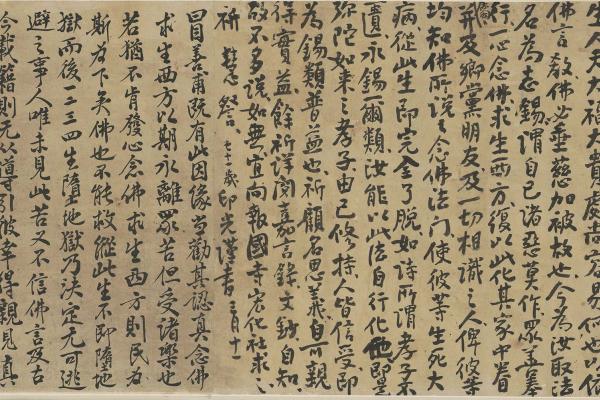 生人天大福大貴處尚容易何也以信
佛言教佛必垂慈加被故也今為汝取法
名為志錫謂自己諸惡莫作眾善奉
行一心念佛求生西方復以此化其家中眷
屬並及鄉黨朋友及一切相識之人俾彼等
均知佛所說之念佛法門使彼等生死大
病從此生即完全了脫如詩所謂孝子不
匱永錫爾類汝能以此法自行化他即是
彌陀如來之孝子由己修持人皆信受即
為錫類普益也祈顧名思義自可親
得實益餘祈詳閱嘉言錄文鈔自知
故不多說如無宜向報國寺弘化社求之
祈慧詧 七十二歲印光謹書 月十一
目善甫既有此因緣當勸其認真念佛
求生西方以期永離眾苦但受諸樂也
若猶不肯發心念佛求生西方則民為
斯為下矣佛也不能救縱此生不即墮地
獄而後二三四生墮地獄乃決定无可逃
避之事人唯未見此苦又不信佛言及古
今載籍則无以導引彼幸得親見真